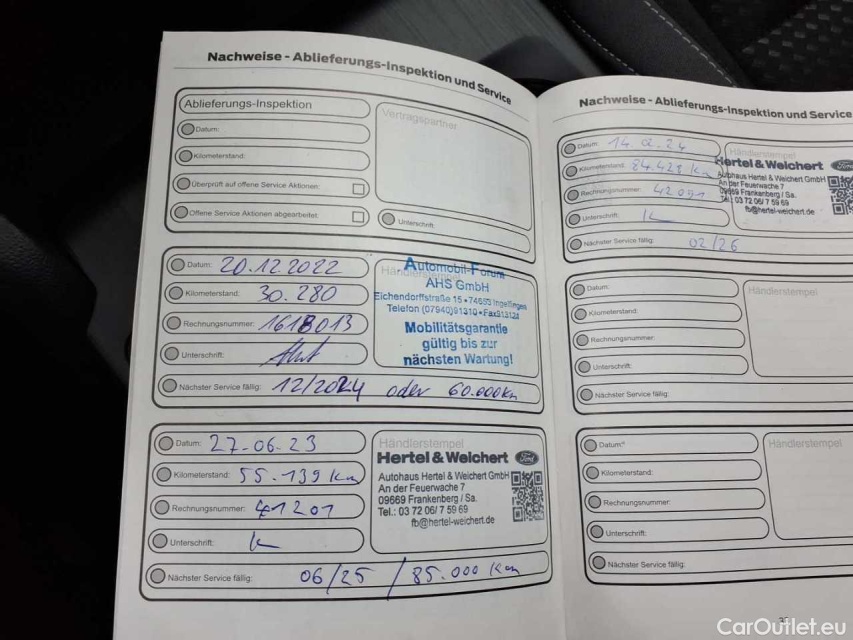 Nachweise - Ablieferungs-Inspektion und Service
Ablieferungs-Inspektion
Datum:
Kilometerstand:
Überprüft auf offene Service Aktionen:
Offene Service Aktionen abgearbeitet:
Vertragspartner
Unterschrift:
Datum: 20.12.2022
Kilometerstand: 30.280
Rechnungsnummer: 1618013
Unterschrift:
Nächster Service fällig: 12/2024 oder 60.000km
Händlerstempel
Automobil-Forum
AHS GmbH
Eichendorffstraße 15 • 74653 Ingelfingen
Telefon (07940)91310 • Fax913121
Mobilitätsgarantie
gültig bis zur
nächsten Wartung!
Datum: 27-06-23
Kilometerstand: 55.139 Km
Rechnungsnummer: 41201
Unterschrift:
Nächster Service fällig: 06/25 / 85.000 Km
Händlerstempel
Hertel & Weichert Ford
Autohaus Hertel & Weichert GmbH
An der Feuerwache 7
09669 Frankenberg / Sa.
Tel.: 03 72 06/ 7 59 69
fb@hertel-weichert.de
Nachweise - Ablieferungs-Inspektion und Service
Datum: 14.02.24
Kilometerstand: 84.423 Km
Rechnungsnummer: 42091
Unterschrift:
Nächster Service fällig: 02/26
Händlerstempel
Hertel & Weichert
Autohaus Hertel & Weichert GmbH
An der Feuerwache 7
09669 Frankenberg / Sa.
Tel.: 03 72 06/ 7 59 69
fb@hertel-weichert.de
Datum:
Kilometerstand:
Rechnungsnummer:
Unterschrift:
Nächster Service fällig:
Händlerstempel
Datum:
Kilometerstand:
Rechnungsnummer:
Unterschrift:
Nächster Service fällig:
Händlerstempel
CarOutlet.eu